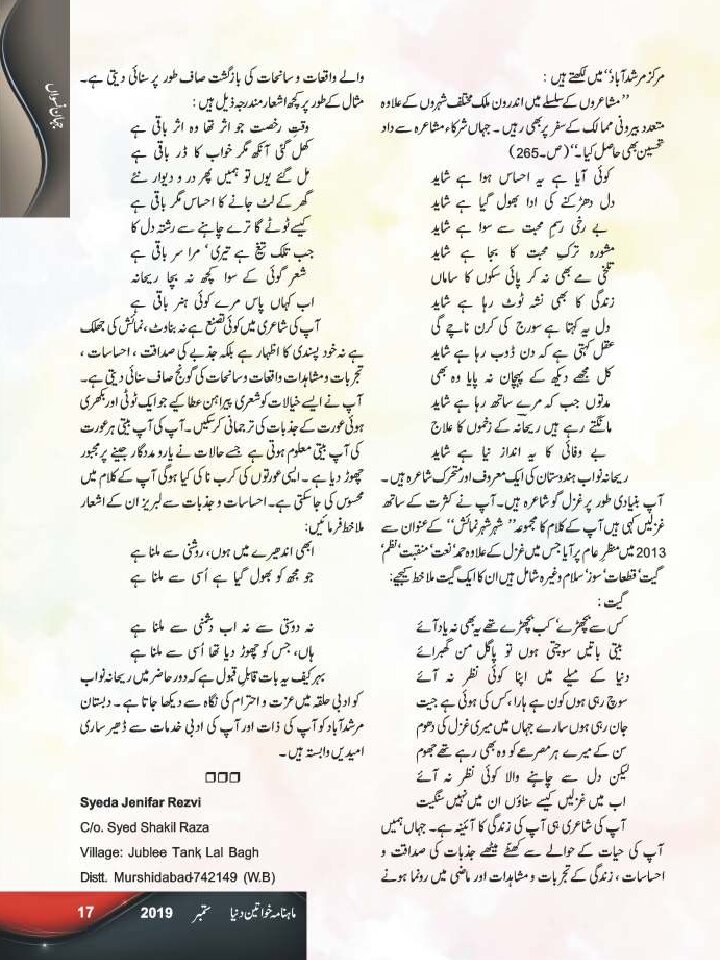 جہان نسواں
مرکز مرشدآباد‘ میں لکھتے ہیں:
’’مشاعروں کے سلسلے میں اندرون ملک مختلف شہروں کے علاوہ
متعدد بیرونی ممالک کے سفر پر بھی رہیں۔ جہاں شرکاء مشاعرہ سے داد
تحسین بھی حاصل کیا۔‘‘ (ص۔265)
کوئی آیا ہے یہ احساس ہوا ہے شاید
دل دھڑکنے کی ادا بھول گیا ہے شاید
بے رخی رسم محبت سے سوا ہے شاید
مشورہ ترکِ محبت کا بجا ہے شاید
تلخی مے بھی نہ کر پائی سکوں کا ساماں
زندگی کا بھی نشہ ٹوٹ رہا ہے شاید
دل یہ کہتا ہے سورج کی کرن ناچے گی
عقل کہتی ہے کہ دن ڈوب رہا ہے شاید
کل مجھے دیکھ کے پہچان نہ پایا وہ بھی
مدتوں جب کہ مرے ساتھ رہا ہے شاید
مانگتے رہے ہیں ریحانہ کے زخموں کا علاج
بے وفائی کا یہ انداز نیا ہے شاید
ریحانہ نواب ہندوستان کی ایک معروف اور متحرک شاعرہ ہیں۔
آپ بنیادی طور پر غزل گو شاعرہ ہیں۔ آپ نے کثرت کے ساتھ
غزلیں کہی ہیں آپ کے کلام کا مجموعہ ’’شہر شہر نمائش‘‘ کے عنوان سے
2013 میں منظر عام پر آیا جس میں غزل کے علاوہ حمد‘ نعت‘ منقبت‘ نظم‘
گیت‘ قطعات‘ سوز‘ سلام وغیرہ شامل ہیں ان کا ایک گیت ملاحظہ کیجیے:
گیت:
کس سے بچھڑے‘ کب بچھڑے تھے یہ بھی نہ یاد آئے
بیتی باتیں سوچتی ہوں تو پاگل من گھبرائے
دنیا کے میلے میں اپنا کوئی نظر نہ آئے
سوچ رہی ہوں کون ہے ہارا، کس کی ہوئی ہے جیت
جان رہی ہوں سارے جہاں میں میری غزل کی دھوم
سن کے میرے ہر مصرعے کو وہ بھی رہے تھے جھوم
لیکن دل سے چاہنے والا کوئی نظر نہ آئے
اب میں غزلیں کیسے سناؤں ان میں نہیں سنگیت
آپ کی شاعری ہی آپ کی زندگی کا آئینہ ہے۔ جہاں ہمیں
آپ کی حیات کے حوالے سے کھٹے میٹھے جذبات کی صداقت و
احساسات، زندگی کے تجربات و مشاہدات اور ماضی میں رونما ہونے
والے واقعات و سانحات کی بازگشت صاف طور پر سنائی دیتی ہے۔
مثال کے طور پر کچھ اشعار مندرجہ ذیل ہیں:
وقتِ رخصت جو اثر تھا وہ اثر باقی ہے
کھل گئی آنکھ مگر خواب کا ڈر باقی ہے
مل گئے یوں تو ہمیں پھر در و دیوار نئے
گھر کے لٹ جانے کا احساس مگر باقی ہے
کیسے ٹوٹے گا ترے چاہنے سے رشتہ دل کا
جب تلک تیغ ہے تیری‘ مرا سر باقی ہے
شعر گوئی کے سوا کچھ نہ بچا ریحانہ
اب کہاں پاس مرے کوئی ہنر باقی ہے
آپ کی شاعری میں کوئی تصنع ہے نہ بناوٹ، نمائش کی جھلک
ہے نہ خود پسندی کا اظہار ہے بلکہ جذبے کی صداقت، احساسات،
تجربات و مشاہدات واقعات و سانحات کی گونج صاف سنائی دیتی ہے۔
آپ نے ایسے خیالات کو شعری پیراہن عطا کیے جو ایک ٹوٹی اور بکھری
ہوئی عورت کے جذبات کی ترجمانی کرسکیں۔ آپ کی آپ بیتی ہر عورت
کی آپ بیتی معلوم ہوتی ہے جسے حالات نے بارومددگار جینے پر مجبور
چھوڑ دیا ہے۔ ایسی عورتوں کی کرب ناکی کیا ہوگی آپ کے کلام میں
محسوس کی جاسکتی ہے۔ احساسات و جذبات سے لبریز ان کے اشعار
ملاحظہ فرمائیں:
ابھی اندھیرے میں ہوں، روشنی سے ملنا ہے
جو مجھ کو بھول گیا ہے اُسی سے ملنا ہے
نہ دوستی سے نہ اب دشمنی سے ملنا ہے
ہاں، جس کو چھوڑ دیا تھا اُسی سے ملنا ہے
بہر کیف یہ بات قابلِ قبول ہے کہ دور حاضر میں ریحانہ نواب
کو ادبی حلقہ میں عزت و احترام کی نگاہ سے دیکھا جاتا ہے۔ دبستان
مرشدآباد کو آپ کی ذات اور آپ کی ادبی خدمات سے ڈھیر ساری
امیدیں وابستہ ہیں۔
Syeda Jenifar Rezvi
C/o. Syed Shakil Raza
Village: Jublee Tank, Lal Bagh
Distt. Murshidabad-742149 (W.B)
ماہنامہ خواتین دنیا ستمبر 2019 17